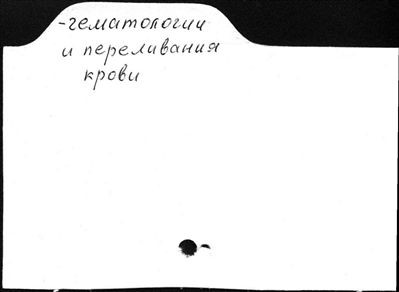 -гематологии
и переливания
крови